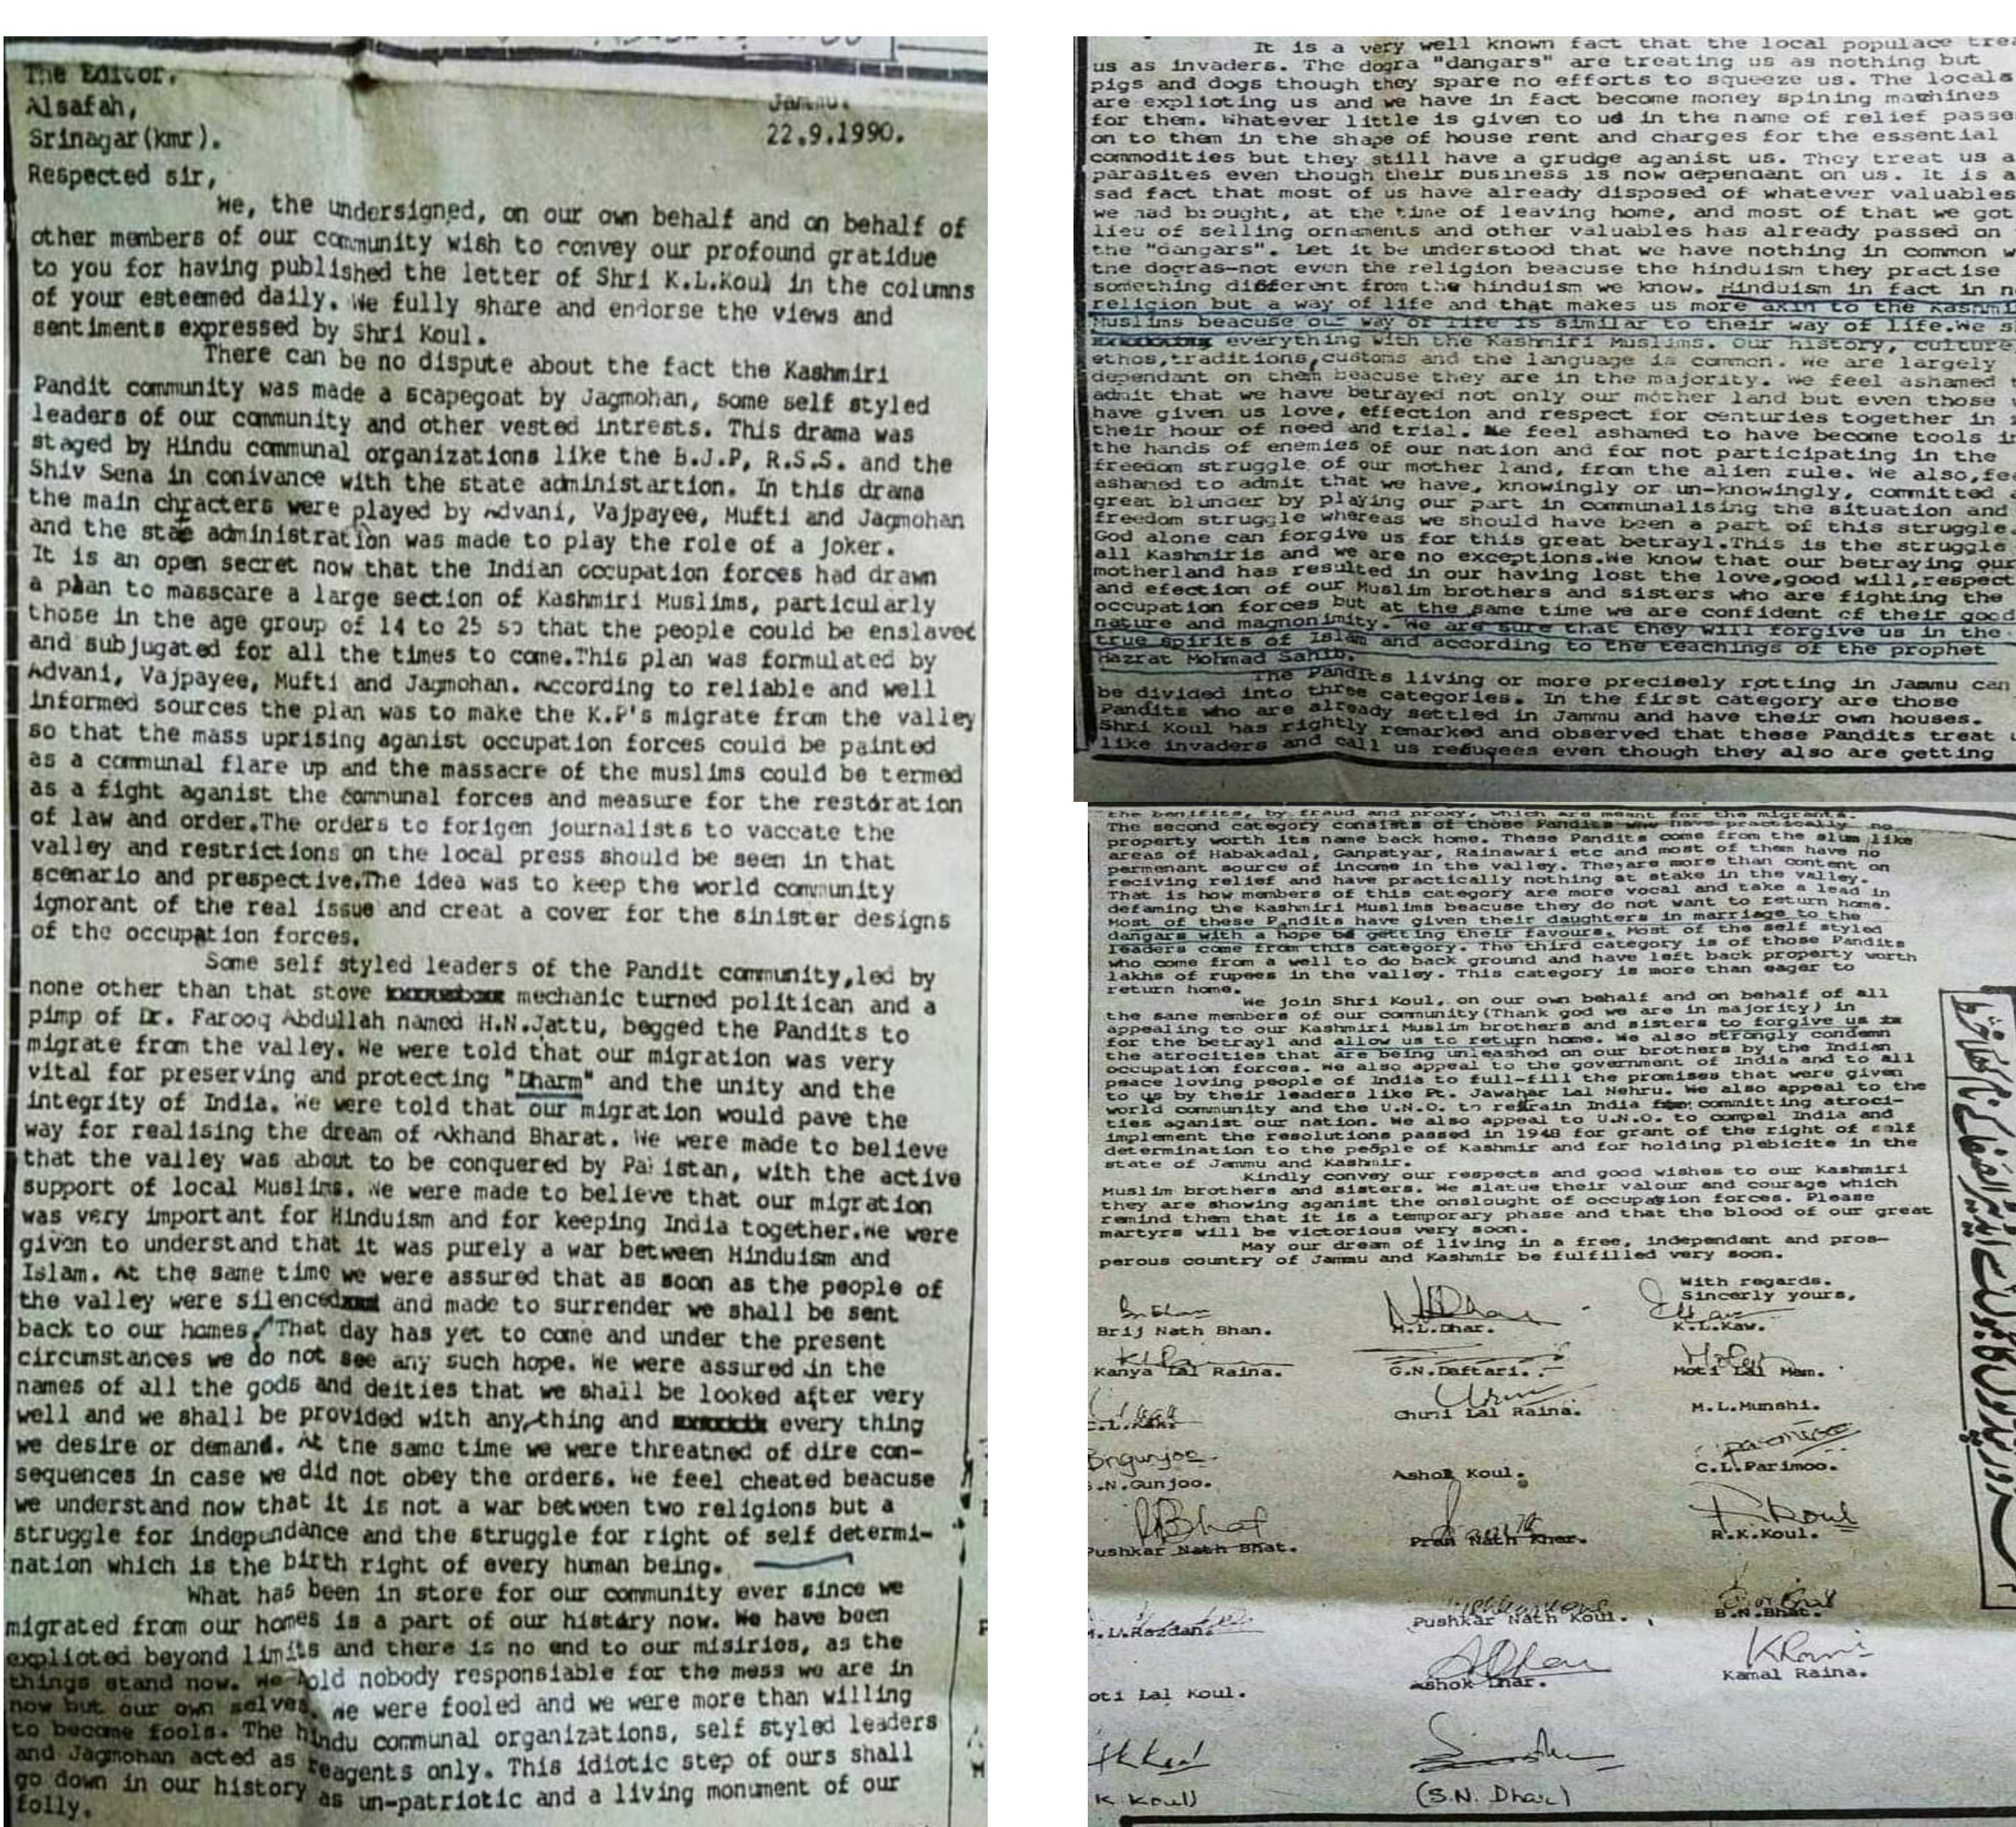 The Editor,
Alsafah,
Srinagar(kmr).
Jammu.
22.9.1990.
Respected sir,
We, the undersigned, on our own behalf and on behalf of
other members of our community wish to convey our profound gratidue
to you for having published the letter of Shri K.L.Koul in the columns
of your esteemed daily. We fully share and endorse the views and
sentiments expressed by Shri Koul.
There can be no dispute about the fact the Kashmiri
Pandit community was made a scapegoat by Jagmohan, some self styled
leaders of our community and other vested intrests. This drama was
staged by Hindu communal organizations like the B.J.P, R.S.S. and the
Shiv Sena in conivance with the state administartion. In this drama
the main chracters were played by Advani, Vajpayee, Mufti and Jagmohan
and the state administration was made to play the role of a joker.
It is an open secret now that the Indian occupation forces had drawn
a plan to masscare a large section of Kashmiri Muslims, particularly
those in the age group of 14 to 25 so that the people could be enslaved
and subjugated for all the times to come.This plan was formulated by
Advani, Vajpayee, Mufti and Jagmohan. According to reliable and well
informed sources the plan was to make the K.P's migrate from the valley
so that the mass uprising aganist occupation forces could be painted
as a communal flare up and the massacre of the muslims could be termed
as a fight aganist the communal forces and measure for the restoration
of law and order.The orders to forigen journalists to vaccate the
valley and restrictions on the local press should be seen in that
scenario and prespective.The idea was to keep the world community
ignorant of the real issue and creat a cover for the sinister designs
of the occupation forces.
Some self styled leaders of the Pandit community,led by
none other than that stove mechanic turned politican and a
pimp of Dr. Farooq Abdullah named H.N.Jattu, begged the Pandits to
migrate from the valley. We were told that our migration was very
vital for preserving and protecting "Dharm" and the unity and the
integrity of India. We were told that our migration would pave the
way for realising the dream of Akhand Bharat. We were made to believe
that the valley was about to be conquered by Pakistan, with the active
support of local Muslims. We were made to believe that our migration
was very important for Hinduism and for keeping India together.We were
given to understand that it was purely a war between Hinduism and
Islam. At the same time we were assured that as soon as the people of
the valley were silenced and made to surrender we shall be sent
back to our homes. That day has yet to come and under the present
circumstances we do not see any such hope. We were assured in the
names of all the gods and deities that we shall be looked after very
well and we shall be provided with any thing and every thing
we desire or demand. At the same time we were threatned of dire con-
sequences in case we did not obey the orders. We feel cheated beacuse
we understand now that it is not a war between two religions but a
struggle for independance and the struggle for right of self determi-
nation which is the birth right of every human being.
What has been in store for our community ever since we
migrated from our homes is a part of our history now. We have been
explioted beyond limits and there is no end to our misiries, as the
things stand now. We hold nobody responsiable for the mess we are in
now but our own selves. We were fooled and we were more than willing
to become fools. The hindu communal organizations, self styled leaders
and Jagmohan acted as reagents only. This idiotic step of ours shall
go down in our history as un-patriotic and a living monument of our
folly.
It is a very well known fact that the local populace
us as invaders. The dogra "dangars" are treating us as nothing but
pigs and dogs though they spare no efforts to squeeze us. The locals
are explioting us and we have in fact become money spining machines
for them. Whatever little is given to us in the name of relief
on to them in the shape of house rent and charges for the essential
commodities but they still have a grudge aganist us. They treat us
parasites even though their business is now dependant on us. It is a
sad fact that most of us have already disposed of whatever valuables
we had brought, at the time of leaving home, and most of that we got
lieu of selling ornaments and other valuables has already passed on
the "dangars". Let it be understood that we have nothing in common
the dogras-not even the religion beacuse the hinduism they practise
something different from the hinduism we know. Hinduism in fact in
religion but a way of life and that makes us more akin to the
Muslims beacuse our way of life is similar to their way of life.We
everything with the Kashmiri Muslims. Our history, culture,
ethos,traditions,customs and the language is common. We are largely
dependant on them beacuse they are in the majority. We feel ashamed
admit that we have betrayed not only our mother land but even those
have given us love, effection and respect for centuries together in
their hour of need and trial. We feel ashamed to have become tools in
the hands of enemies of our nation and for not participating in the
freedom struggle of our mother land, from the alien rule. We also,
ashamed to admit that we have, knowingly or un-knowingly, committed
great blunder by playing our part in communalising the situation and
freedom struggle whereas we should have been a part of this struggle.
God alone can forgive us for this great betrayl.This is the struggle
all Kashmiris and we are no exceptions.We know that our betraying our
motherland has resulted in our having lost the love,good will,respect
and efection of our Muslim brothers and sisters who are fighting the
occupation forces but at the same time we are confident of their good
nature and magnonimity. We are sure that they will forgive us in the
true spirits of Islam and according to the teachings of the prophet
Hazrat Mohmad Sahib.
The Pandits living or more precisely rotting in Jammu can
be divided into three categories. In the first category are those
Pandits who are already settled in Jammu and have their own houses.
Shri Koul has rightly remarked and observed that these Pandits treat
like invaders and call us refugees even though they also are getting
the benifits, by fraud and proxy, which are meant for the migrants.
The second category consists of those Pandits who have practically no
property worth its name back home. These Pandits come from the slum like
areas of Habakadal, Ganpatyar, Rainawari etc and most of them have no
permenant source of income in the valley. They are more than content on
reciving relief and have practically nothing at stake in the valley.
That is how members of this category are more vocal and take a lead in
defaming the Kashmiri Muslims beacuse they do not want to return home.
Most of these Pandits have given their daughters in marriage to the
dangars with a hope of getting their favours. Most of the self styled
leaders come from this category. The third category is of those Pandits
who come from a well to do back ground and have left back property worth
lakhs of rupees in the valley. This category is more than eager to
return home.
We join Shri Koul, on our own behalf and on behalf of all
the sane members of our community(Thank god we are in majority) in
appealing to our Kashmiri Muslim brothers and sisters to forgive us
for the betrayl and allow us to return home. We also strongly condemn
the atrocities that are being unleashed on our brothers by the Indian
occupation forces. We also appeal to the government of India and to all
peace loving people of India to full-fill the promises that were given
to us by their leaders like Pt. Jawahar Lal Nehru. We also appeal to the
world community and the U.N.O. to refrain India committing atroci-
ties aganist our nation. We also appeal to U.N.O. to compel India and
implement the resolutions passed in 1948 for grant of the right of self
determination to the people of Kashmir and for holding plebicite in the
state of Jammu and Kashmir.
Kindly convey our respects and good wishes to our Kashmiri
Muslim brothers and sisters. We slatue their valour and courage which
they are showing aganist the onslought of occupation forces. Please
remind them that it is a temporary phase and that the blood of our great
martyrs will be victorious very soon.
May our dream of living in a free, independent and pros-
perous country of Jammu and Kashmir be fulfilled very soon.
With regards.
Sincerly yours,
Brij Nath Bhan. M.L.Dhar. K.L.Kaw.
Kanya Lal Raina. G.N.Daftari. Moti Lal Mam.
Chuni Lal Raina. M.L.Munshi.
.N.Gunjoo. Ashok Koul. C.L.Parimoo.
Pushkar Nath Bhat. Pran Nath Kher. R.K.Koul.
.L.Razdan. Pushkar Nath Koul. B.N.Bhat.
oti Lal Koul. Ashok Dhar. Kamal Raina.
K. Koul) (S.N. Dhar)